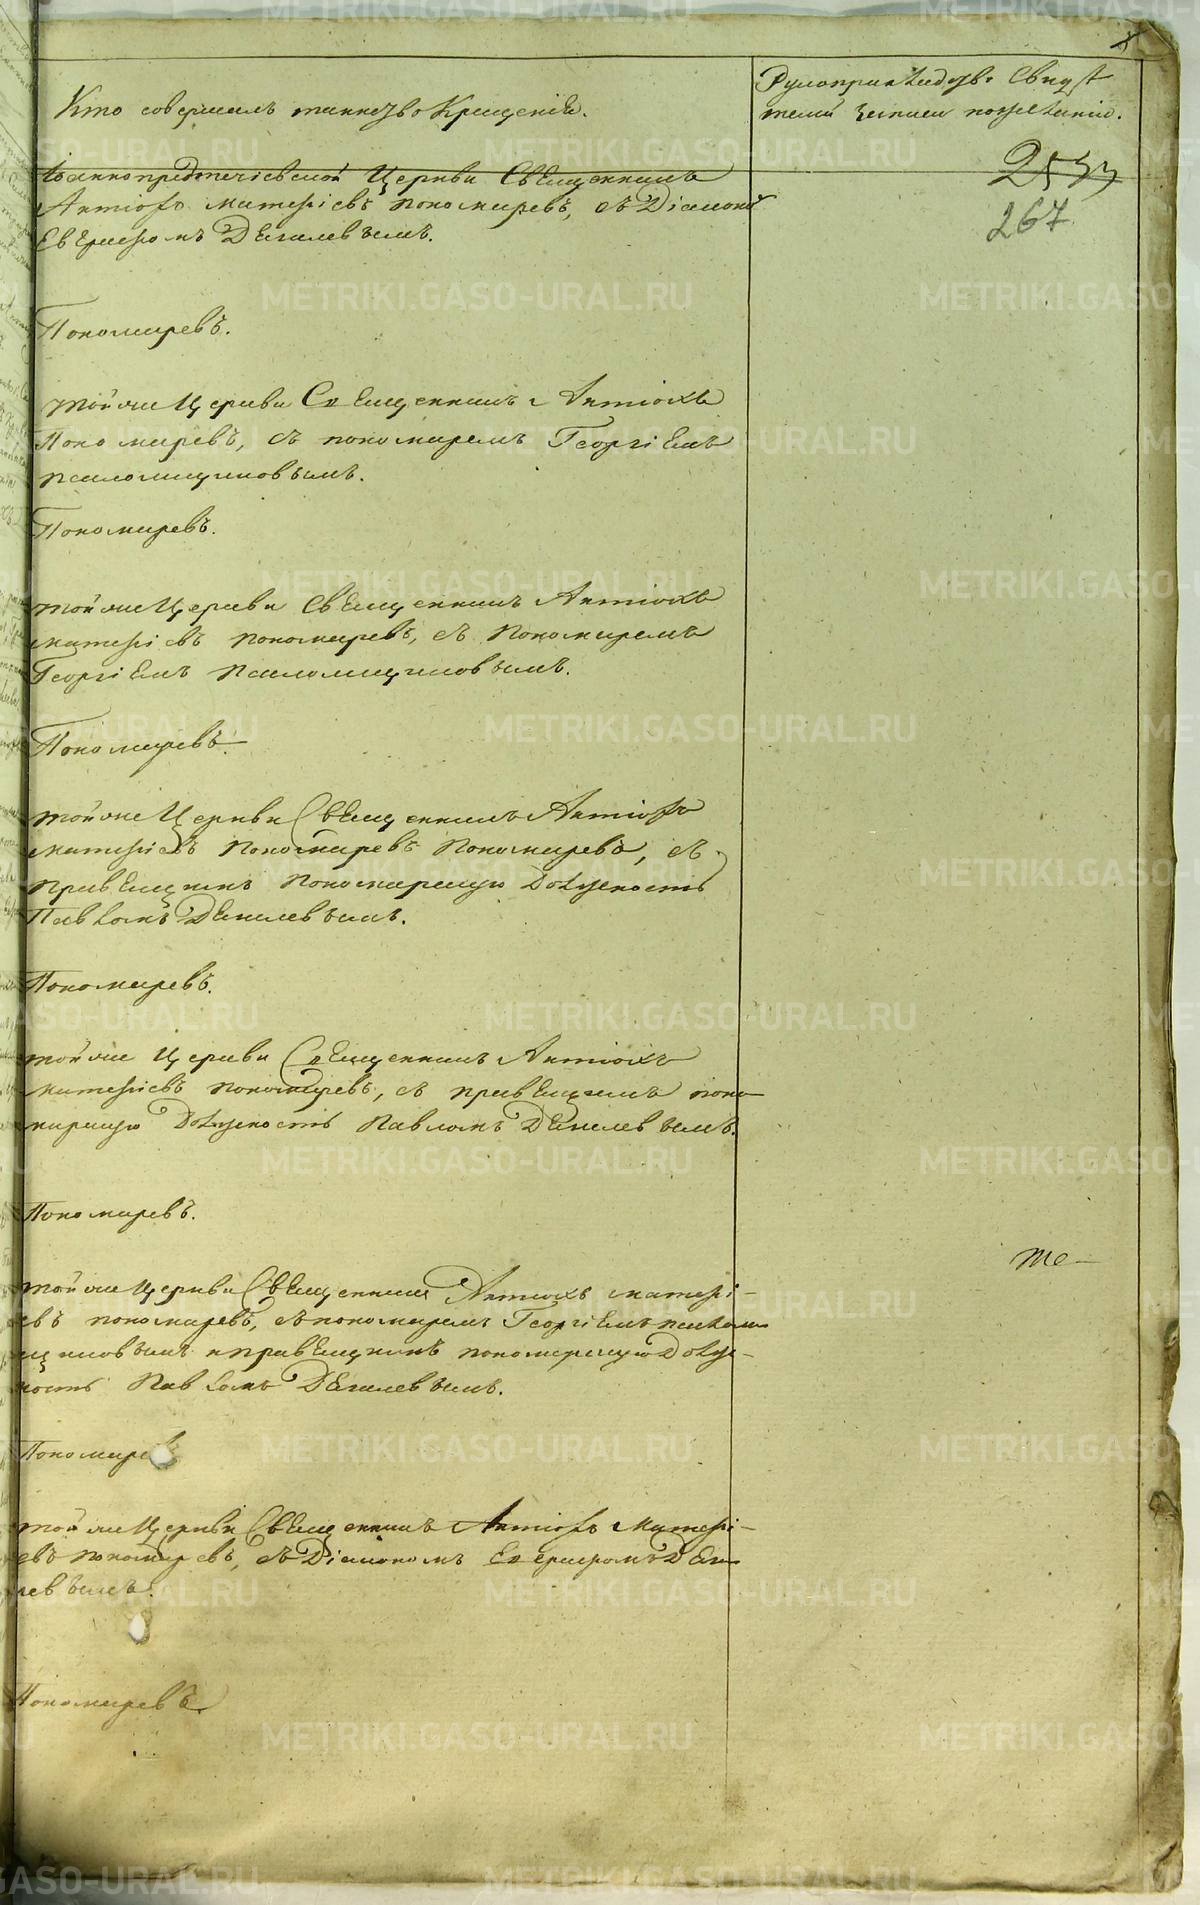 Кто совершалъ таинство Крещенія.
Рукоприкладство Свидѣ
телей записи по желанію.
2533
267
Іоаннопредтечіевской Церкви Священникъ
Антіохъ Матѳіевъ Пономаревъ, съ Діакон
Пономаревъ.
тойже Церкви Священникъ Антіохъ
Пономаревъ, съ пономаремъ Георгіемъ
псаломщиковымъ.
Пономаревъ.
тойже Церкви Священникъ Антіохъ
матѳіевъ пономаревъ, съ Пономаремъ
Георгіемъ Псаломщиковымъ.
Пономаревъ.
тойже Церкви Священникъ Антіохъ
матѳіевъ Пономаревъ Пономаревъ, съ
Правящимъ Пономарскую Должность
Павломъ
Пономаревъ.
тойже Церкви Священникъ Антіохъ
матѳіевъ пономаревъ, съ правящимъ поно
марскую Должность Павломъ
Пономаревъ.
те—
тойже Церкви Священникъ Антіохъ матѳі-
евъ пономаревъ, съ пономаремъ Георгіемъ псалом
щиковымъ и правящимъ пономарскую Долж-
ность Павломъ
Пономарев
тойже Церкви Священникъ Антіохъ Матѳі-
евъ пономаревъ, съ Діакономъ
Пономаревъ.
METRIKI.GASO-URAL.RU